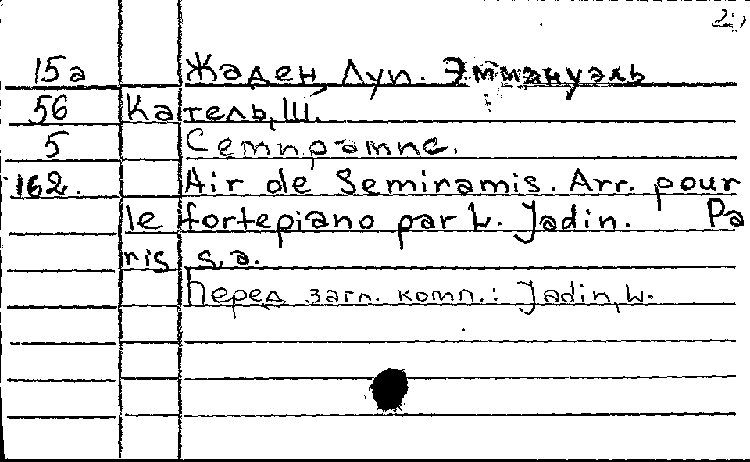 15а Жаден, Луи. Эммануэль
56 Катель, Ш.
5 Семирамис.
162. Air de Seminamis. Arr. pour
le fortepiano par L. Jadin. Pa
ris s.a.
Перед загл. комп.: Jadin, L.